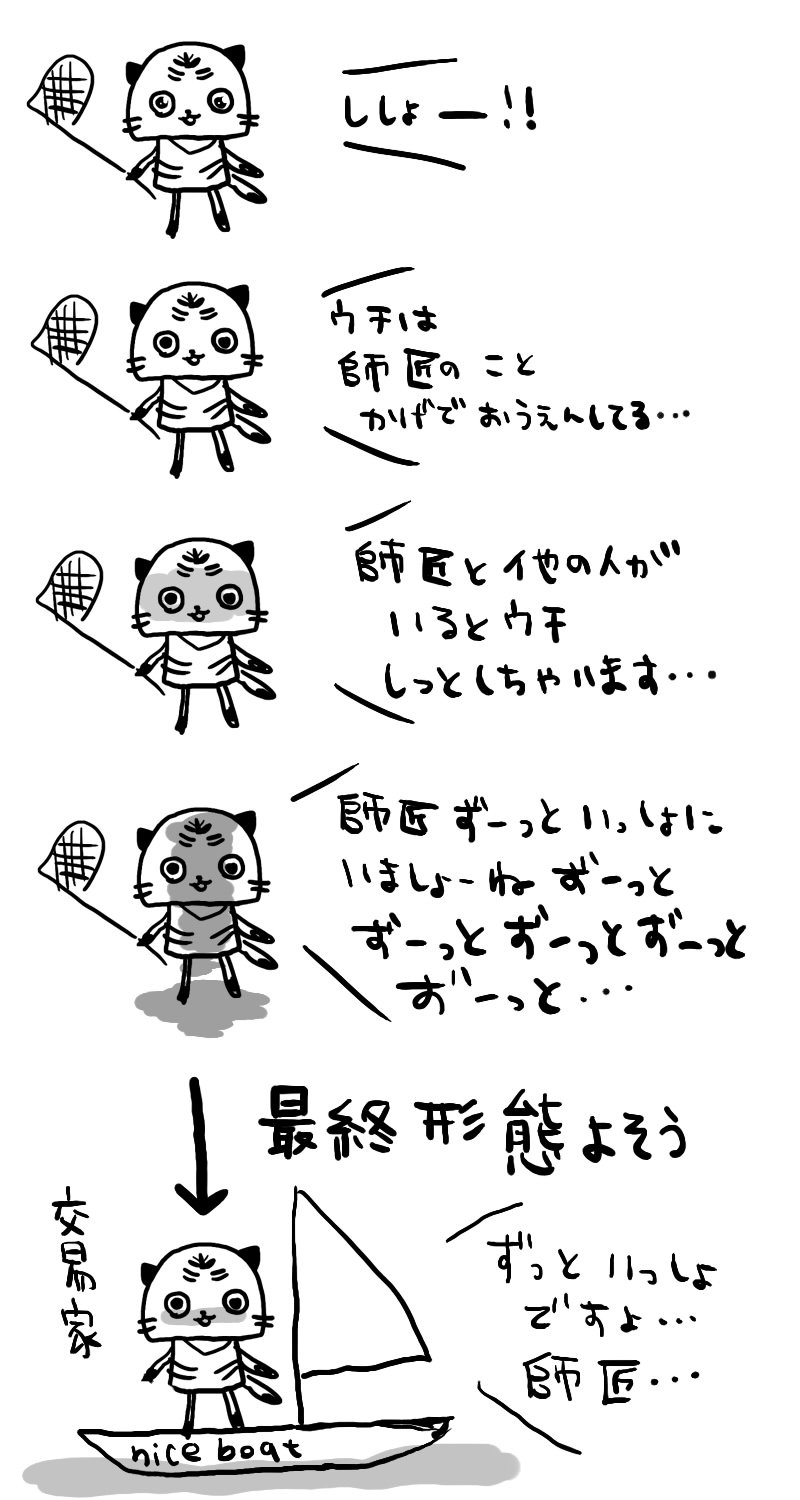 ししょー!!
ウチは
師匠のこと
かげでおうえんしてる…
師匠と他の人が
いるとウチ
しっとしちゃいます…
師匠ずーっといっしょに
いましょーねずーっと
ずーっとずーっとずーっと
ずーっと…
最終形態よそう
交易家
ずっといっしょ
ですよ…
師匠…
nice boat